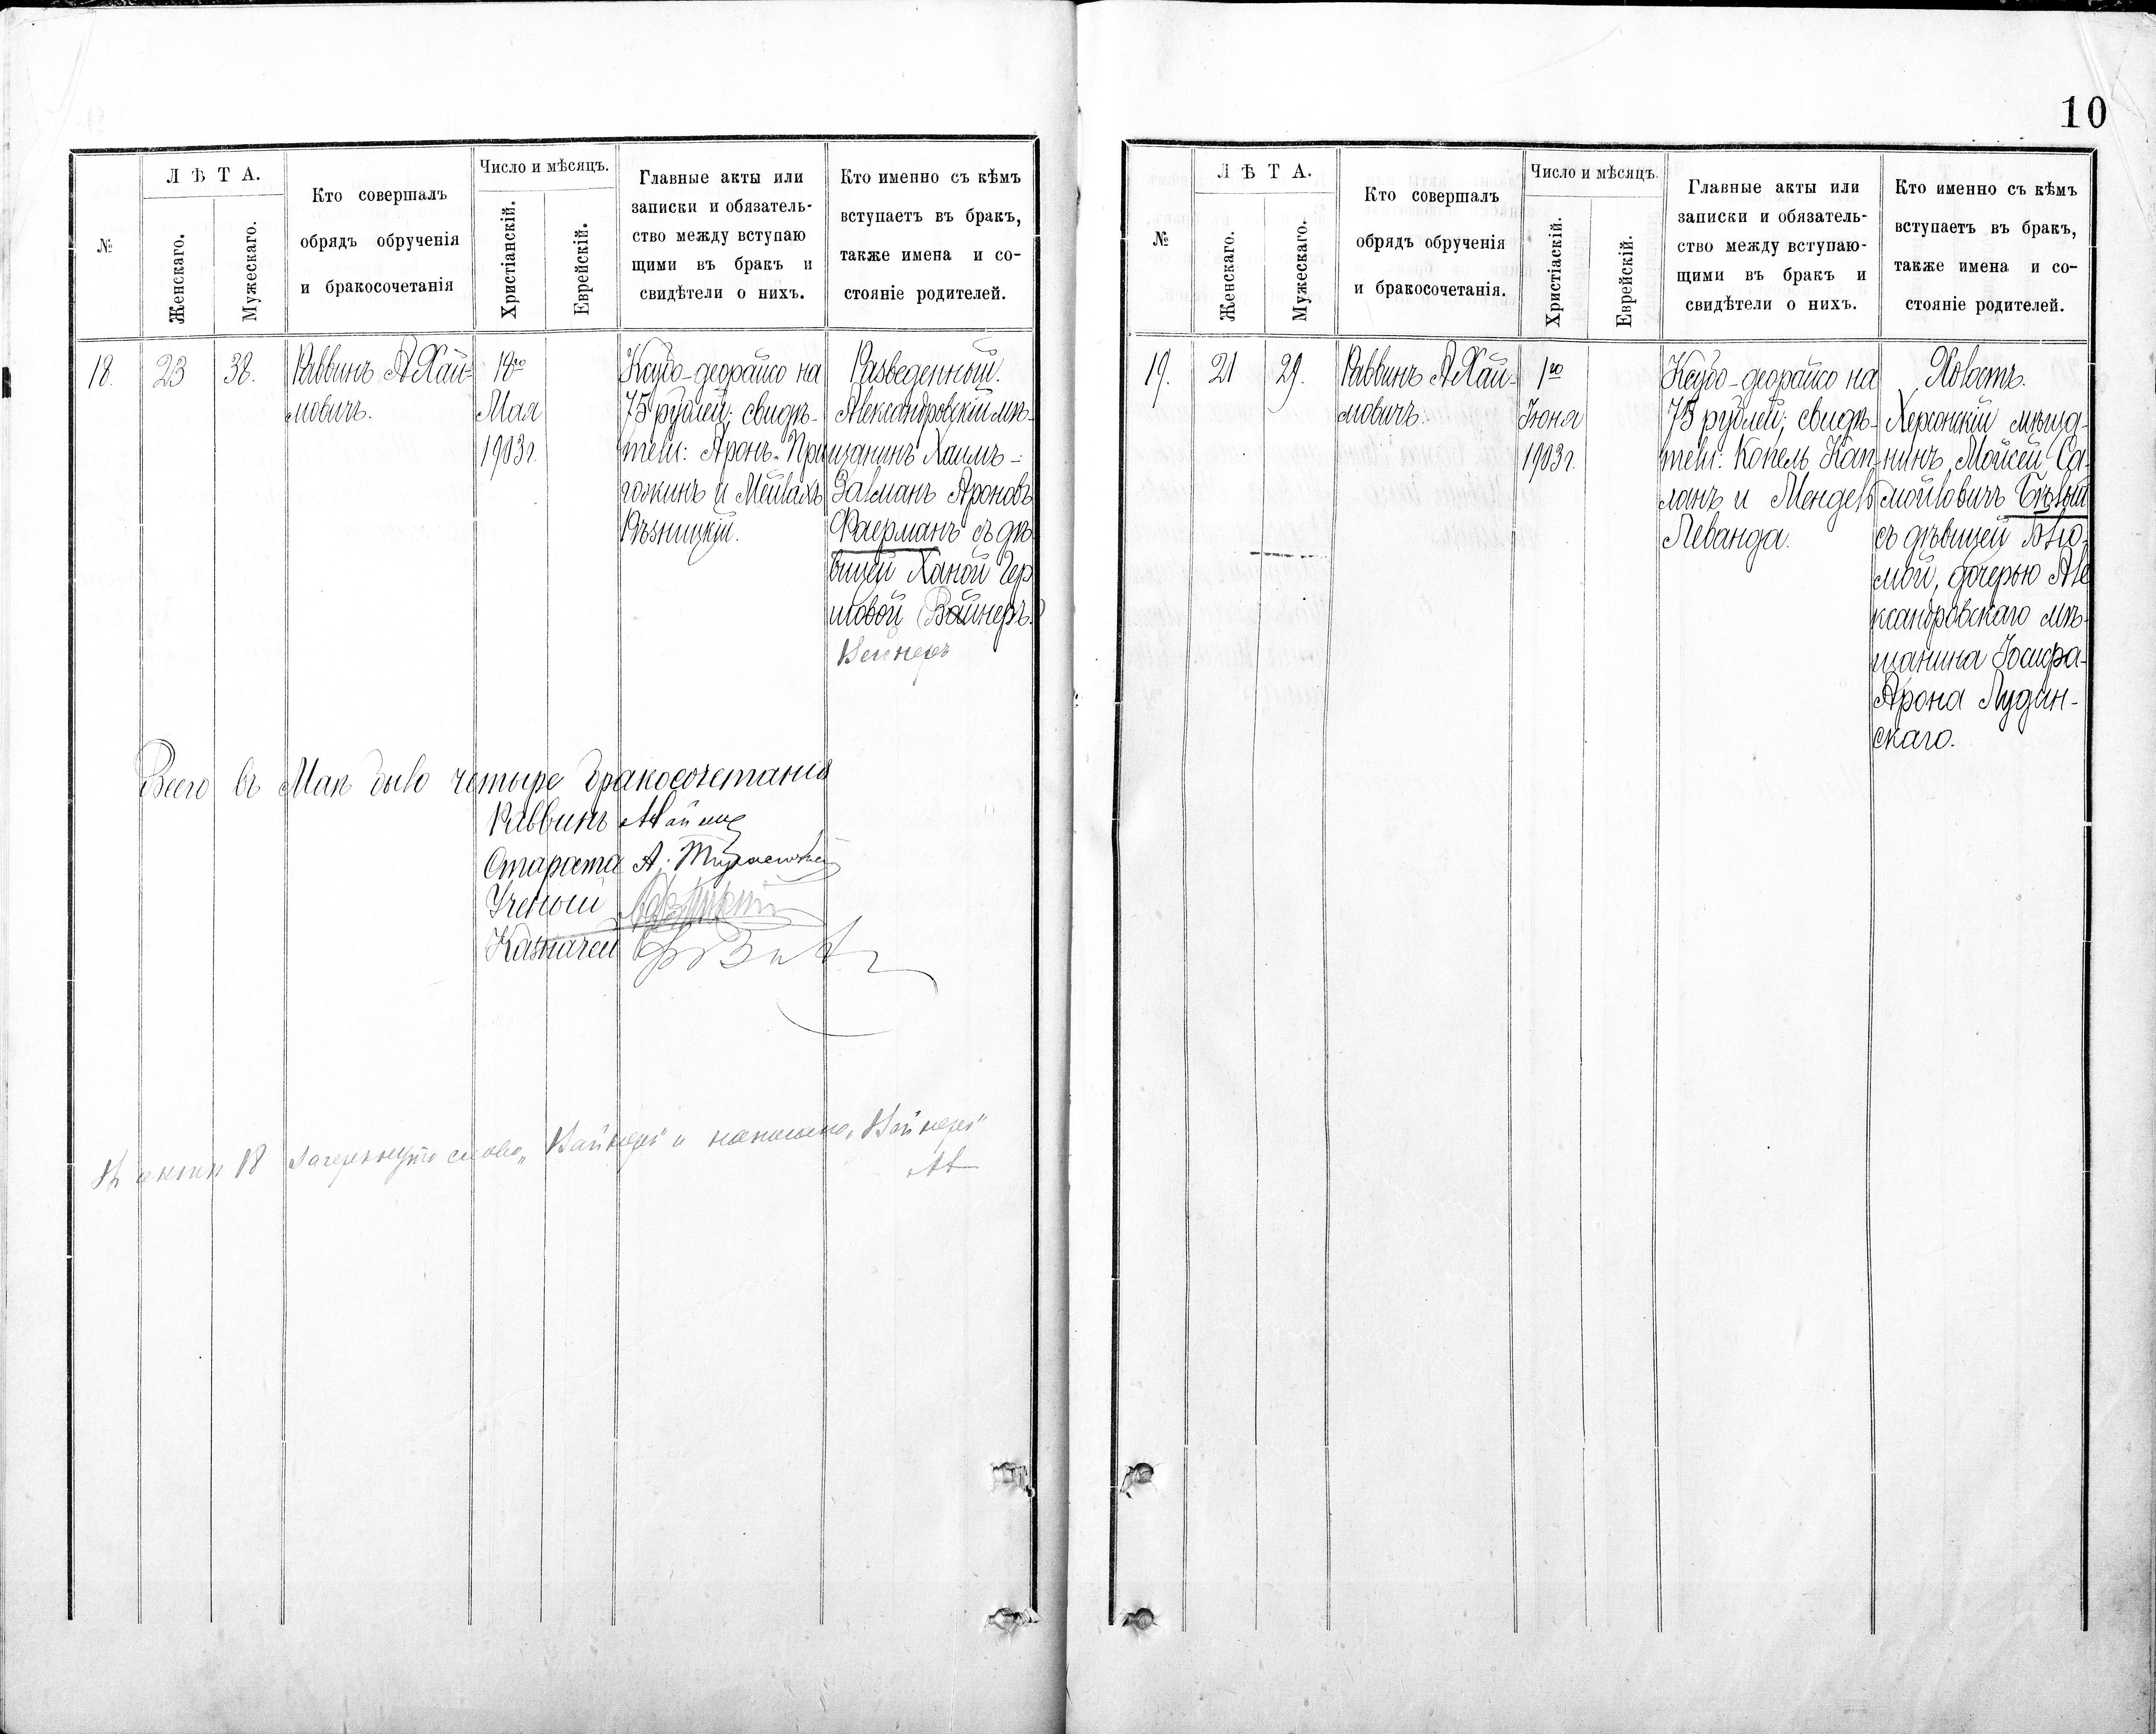 10
№
Л Ѣ Т А.
Женскаго.
Мужескаго.
Кто совершалъ
обрядъ обрученія
и бракосочетанія
Число и мѣсяцъ.
Христіанскій.
Еврейскій.
Главные акты или
записки и обязатель-
ство между вступаю
щими въ бракъ и
свидѣтели о нихъ.
Кто именно съ кѣмъ
вступаетъ въ бракъ,
также имена и со-
стояніе родителей.
18.
23
38.
Раввинъ А Хай-
мовичъ.
18го
Мая
1903 г.
Ксубо-деорайсо на
75 рублей; свидѣ-
тели: Аронъ При
гожинъ и Мейлахъ
Рѣзницкій.
Разведенный.
Александровскій мѣ-
щанинъ Хаимъ-
Залманъ Ароновъ
Фаерманъ съ дѣ-
вицей Ханой Гер
шовой (Вайнеръ.)
Вейнеръ
Всего въ Маѣ было четыре бракосочетанія
Раввинъ
Староста А.
Ученый
Казначей
Въ актѣ 18 зачеркнуто слово „Вайнеръ" и написано „Вейнеръ"
АХ
№
Л Ѣ Т А.
Женскаго.
Мужескаго.
Кто совершалъ
обрядъ обрученія
и бракосочетанія.
Число и мѣсяцъ.
Христіаскій.
Еврейскій.
Главные акты или
записки и обязатель-
ство между вступаю-
щими въ бракъ и
свидѣтели о нихъ.
Кто именно съ кѣмъ
вступаетъ въ бракъ,
также имена и со-
стояніе родителей.
19.
21
29.
Раввинъ А Хай-
мовичъ.
1го
Іюня
1903 г.
Ксубо-деорайсо на
75 рублей; свидѣ-
тели: Копель Кап-
ланъ и Мендель
Леванда.
Холостъ.
Херсонскій мѣща-
нинъ Мойсей Са-
мойловичъ Бѣлый
съ дѣвицей Блю-
мой, дочерью Але
ксандровскаго мѣ-
щанина Іосифа-
Арона Лудин-
скаго.